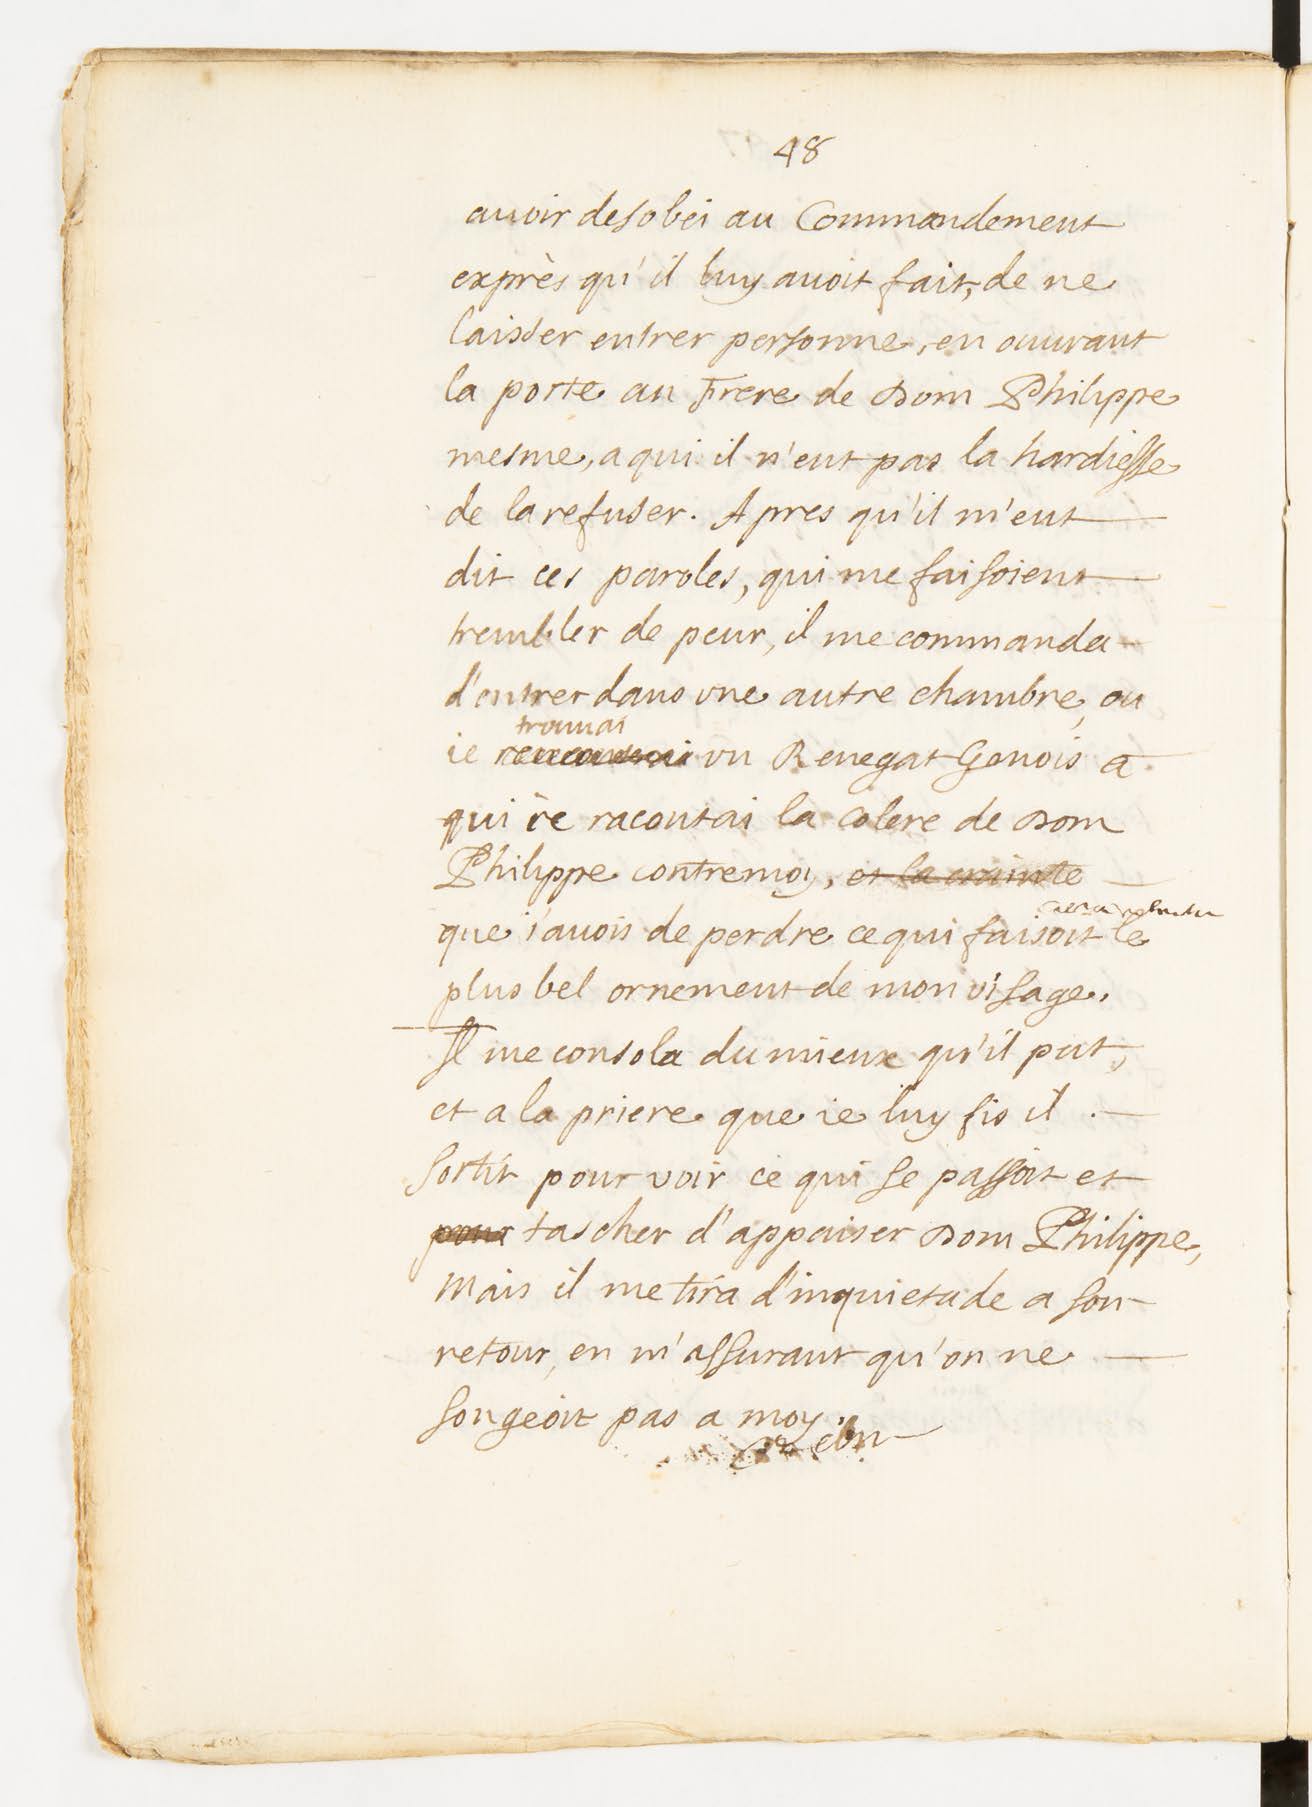 48
auoir desobei au Commandement
exprès qu'il luy auoit fait, de ne
laisser entrer personne, en ouurant
la porte au Frere de Dom Philippe
mesme, a qui il n'eut pas la hardiesse
de la refuser. Apres qu'il m'eut
dit ces paroles, qui me faisoient
trembler de peur, il me commanda
d'entrer dans vne autre chambre, ou
trouuai
ie rencontrai vn Renegat Genois a
qui ie racontai la colere de Dom
Philippe contre moy, et la crainte
que i'auois de perdre ce qui faisoit le
plus bel ornement de mon visage.
Il me consola du mieux qu'il put,
et a la priere que ie luy fis il
sortit pour voir ce qui se passoit et
pour tascher d'appaiser Dom Philippe,
Mais il me tira d'inquietude a son
retour, en m'assurant qu'on ne
songeoit pas a moy.